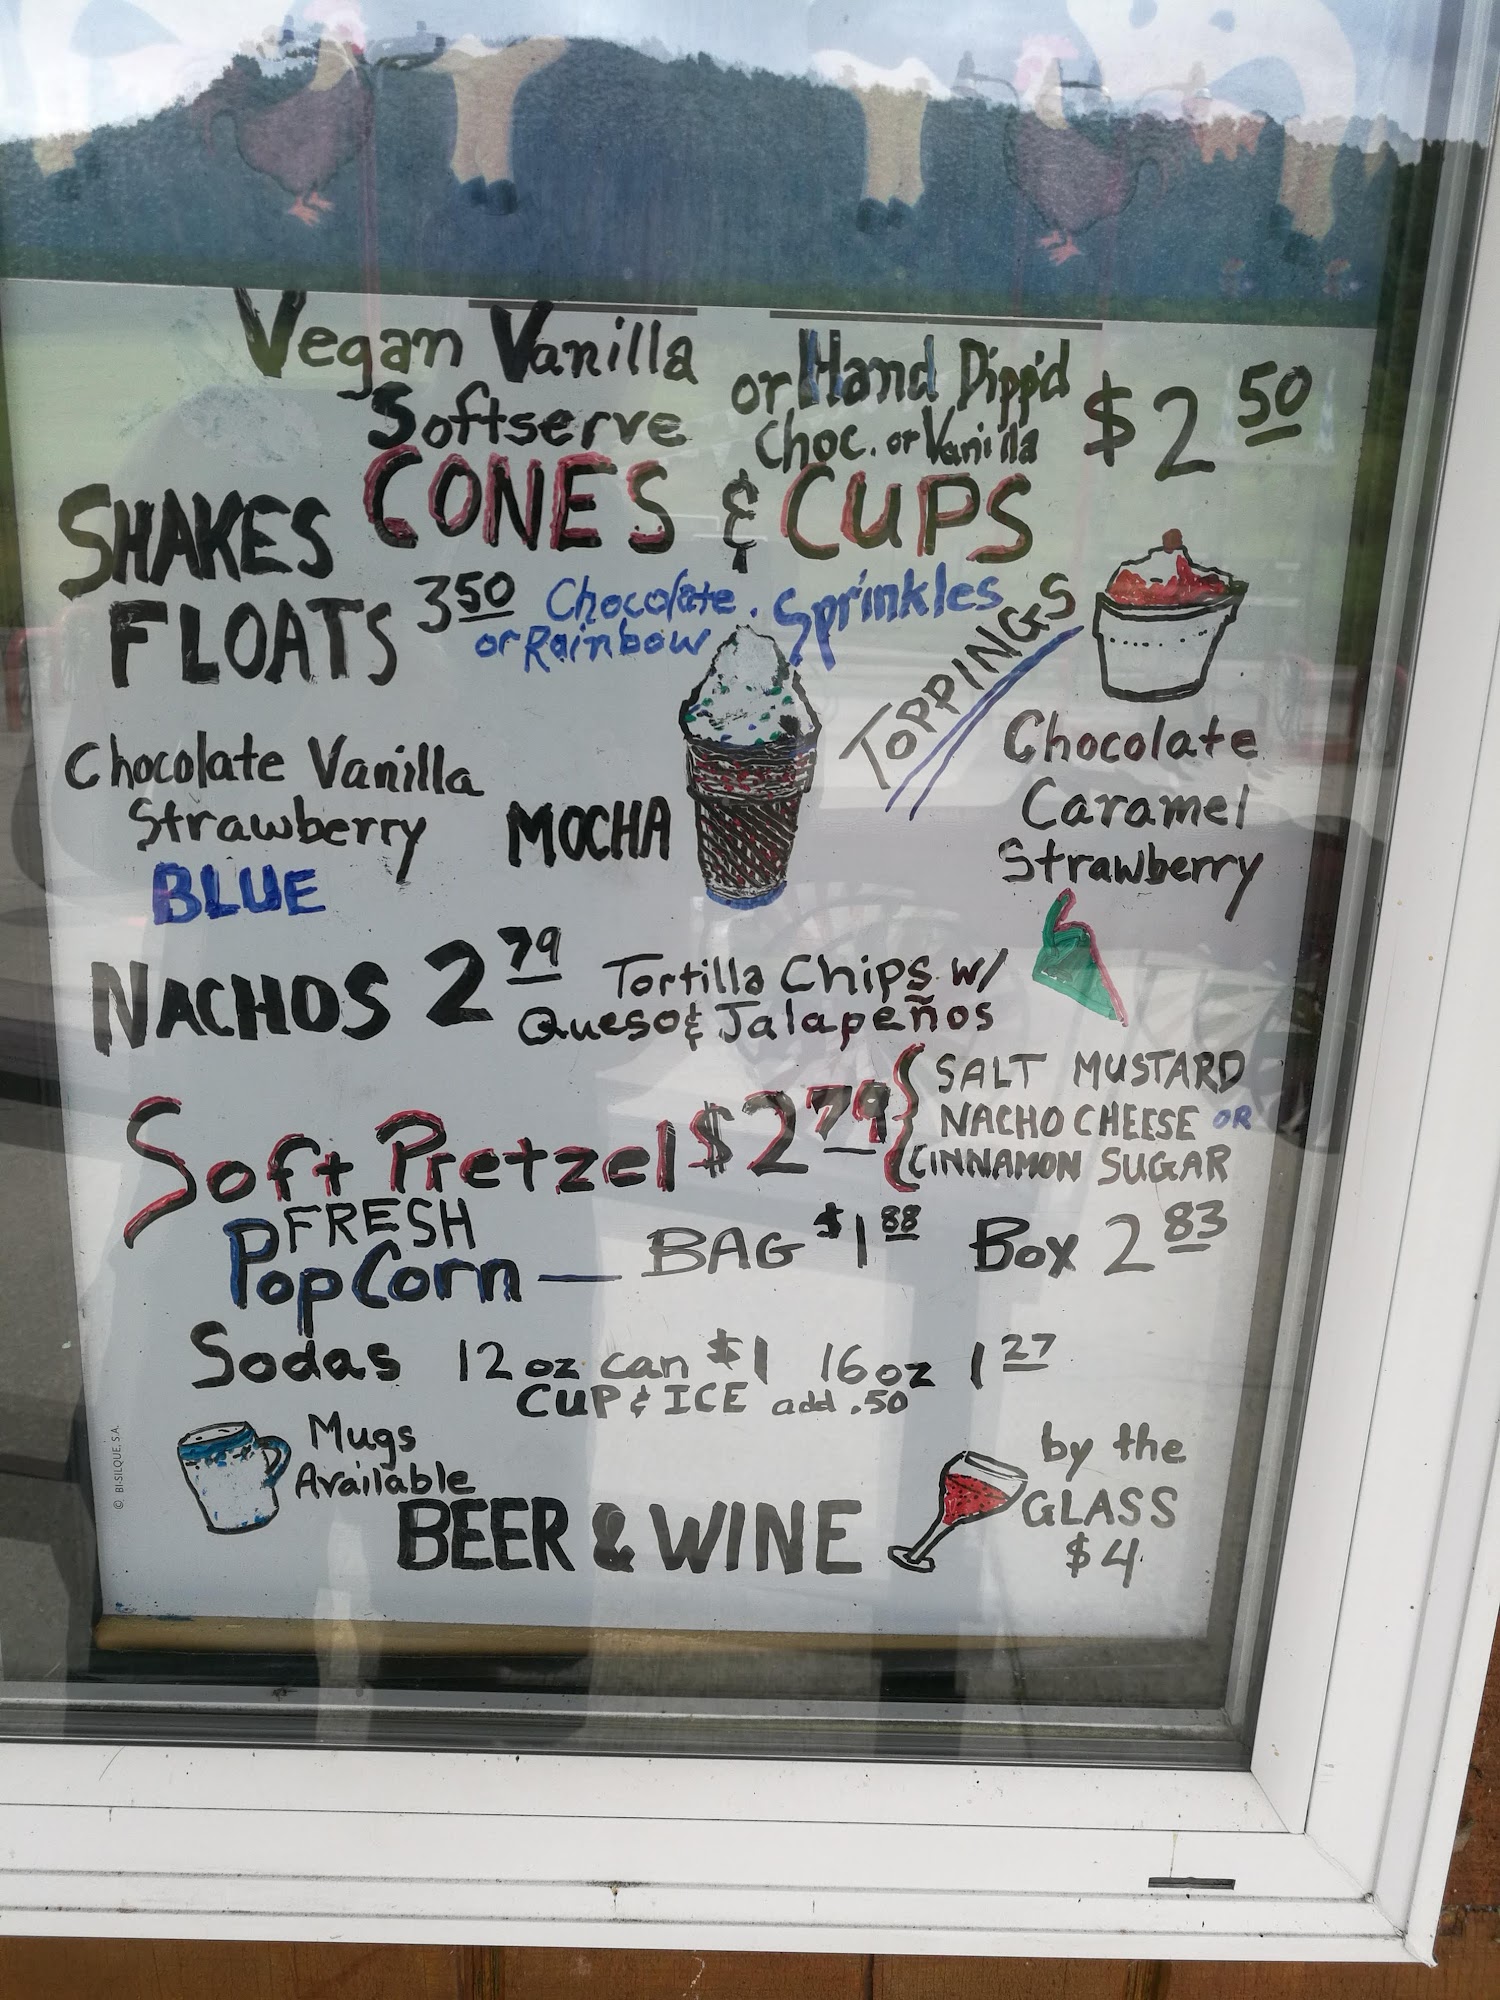 Vegan Vanilla
Softserve
or Hand Dipp'd
Choc. or Vanilla
$2 50
CONES & CUPS
SHAKES
FLOATS 3 50
Chocolate . Sprinkles
or Rainbow
TOPPINGS
Chocolate Vanilla
Strawberry
BLUE
MOCHA
Chocolate
Caramel
Strawberry
NACHOS 2 79
Tortilla Chips w/
Queso & Jalapeños
Soft Pretzel $2 79
SALT MUSTARD
NACHO CHEESE OR
CINNAMON SUGAR
FRESH
PopCorn — BAG $1 88 Box 2 83
Sodas 12 oz can $1 16 oz 1 27
CUP & ICE add .50
Mugs
Available
BEER & WINE
by the
GLASS
$4
© BI-SILQUE, S.A.